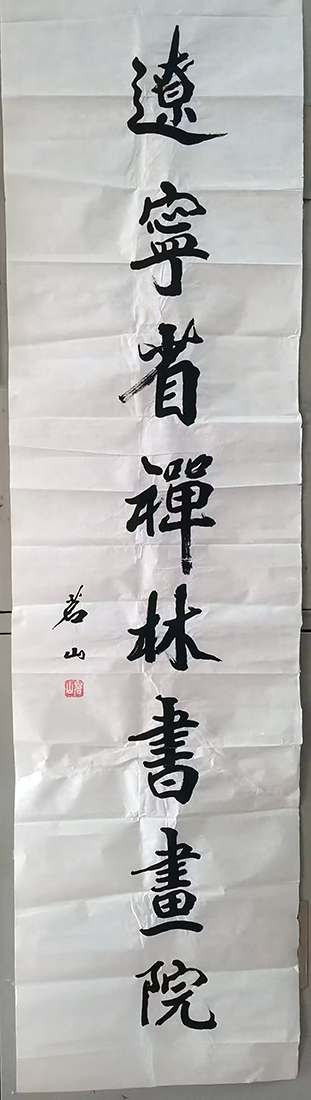 遼寧省禪林書畫院
若山